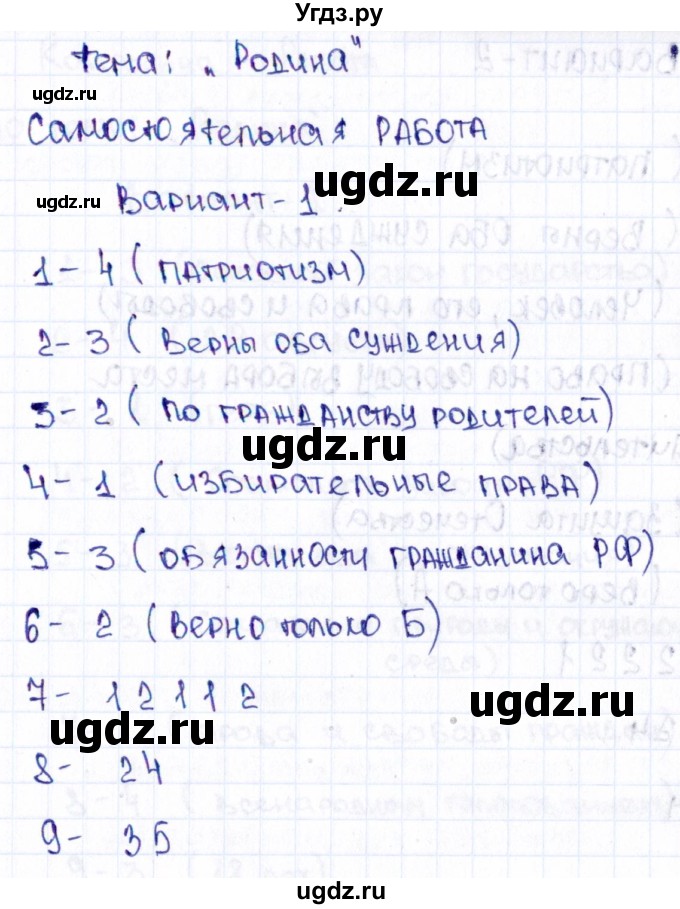 Угдз.ру
тема: „Родина"
ugdz.ru
Самостоятельная РАБОТА
ugdz.ru
ugdz.ru
Вариант-1.
1-4 (ПАТРИОТИЗМ)
2-3 (Верны оба суждения)
ugdz.ru
3-2 (по гражданству родителей)
ugdz.ru
4-1 (избирательные права)
5-3 (обязанности гражданина РФ)
ugdz.ru
6-2 (Верно только Б)
7- 12112
ugdz.ru
ugdz.ru
8- 24
9- 35
ugdz.ru
ugdz.ru